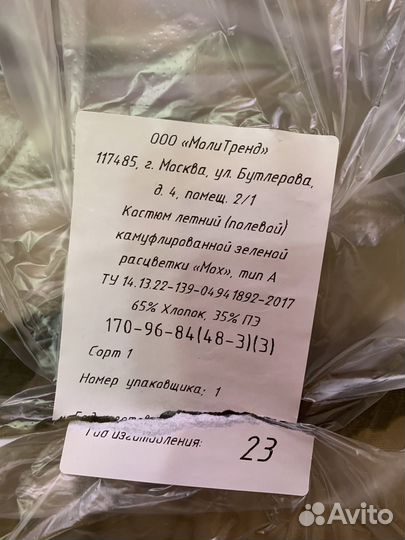 ООО «МолиТренд»
117485, г. Москва, ул. Бутлерова,
д. 4, помещ. 2/1
Костюм летний (полевой)
камуфлированной зеленой
расцветки «Мох», тип А
ТУ 14.13.22-139-04941892-2017
65% Хлопок, 35% ПЭ
170-96-84(48-3)(3)
Сорт 1
Номер упаковщика: 1
Год изготовления: 23
Avito